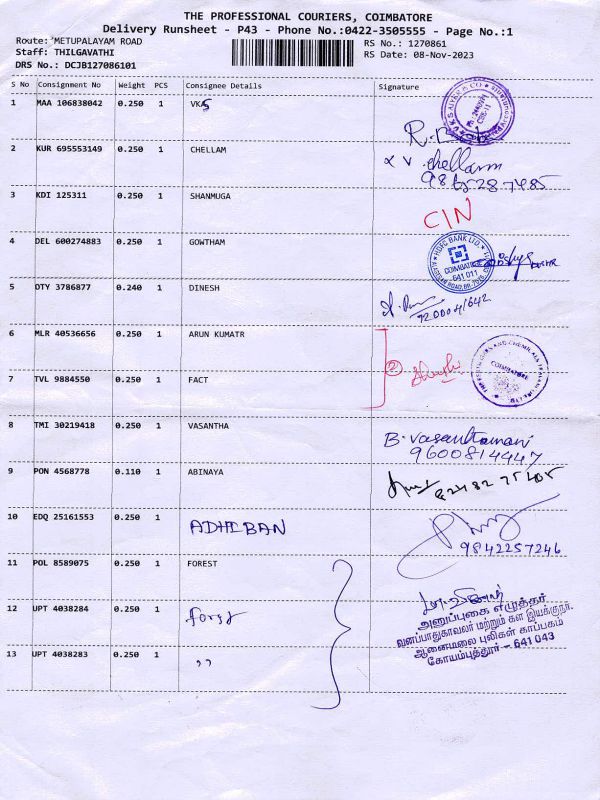 THE PROFESSIONAL COURIERS, COIMBATORE
Delivery Runsheet - P43 - Phone No.:0422-3505555 - Page No.:1
Route: METUPALAYAM ROAD RS No.: 1270861
Staff: THILGAVATHI RS Date: 08-Nov-2023
DRS No.: DCJB127086101
S No Consignment No Weight PCS Consignee Details Signature
1 MAA 106838042 0.250 1 VKS
2 KUR 695553149 0.250 1 CHELLAM
chellamm
9865287485
3 KDI 125311 0.250 1 SHANMUGA
C/N
4 DEL 600274883 0.250 1 GOWTHAM
HDFC BANK LTD.
COIMBATORE
641 011
5 DTY 3786877 0.240 1 DINESH
9200041642
6 MLR 40536656 0.250 1 ARUN KUMATR
2
COIMBATORE
7 TVL 9884550 0.250 1 FACT
8 TMI 30219418 0.250 1 VASANTHA
B. Vasanthamani
9600814447
9 PON 4568778 0.110 1 ABINAYA
10 EDQ 25161553 0.250 1 ADHIBAN
9842257246
11 POL 8589075 0.250 1 FOREST
12 UPT 4038284 0.250 1
அனுப்புகை எழுத்தர்
வனப்பாதுகாவலர் மற்றும் கள இயக்குநர்
ஆனைமலை புலிகள் காப்பகம்
கோயம்புத்தூர் - 641 043
13 UPT 4038283 0.250 1 ,,